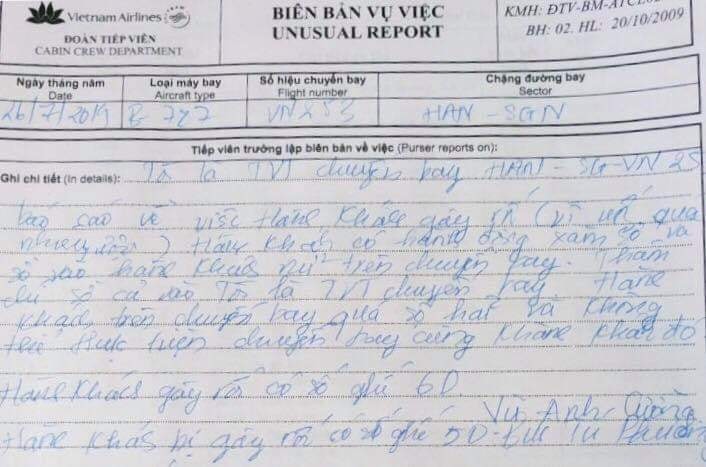 Vietnam Airlines
ĐOÀN TIẾP VIÊN
CABIN CREW DEPARTMENT
BIÊN BẢN VỤ VIỆC
UNUSUAL REPORT
KMH: ĐTV-BM-ATCL
BH: 02. HL: 20/10/2009
Ngày tháng năm
Date
Loại máy bay
Aircraft type
Số hiệu chuyến bay
Flight number
Chặng đường bay
Sector
26/7/2019
B 787
VN 253
HAN - SGN
Tiếp viên trưởng lập biên bản về việc (Purser reports on):
Ghi chi tiết (In details): Tôi là TVT chuyến bay HAN - SG - VN 25
báo cáo về việc Hành khách gây rối (vì uống quá
nhiều rượu) Hành khách có hành động xàm sỡ và
sờ vào hành khách nữ trên chuyến bay. Thậm
chí sờ cả vào Tôi là TVT chuyến bay. Hành
khách trên chuyến bay quá sợ hãi và không
thể thực hiện chuyến bay cùng hành khách đó
Hành khách gây rối có số ghế 6D
Vũ Anh Cường
Hành khách bị gây rối có số ghế 5D